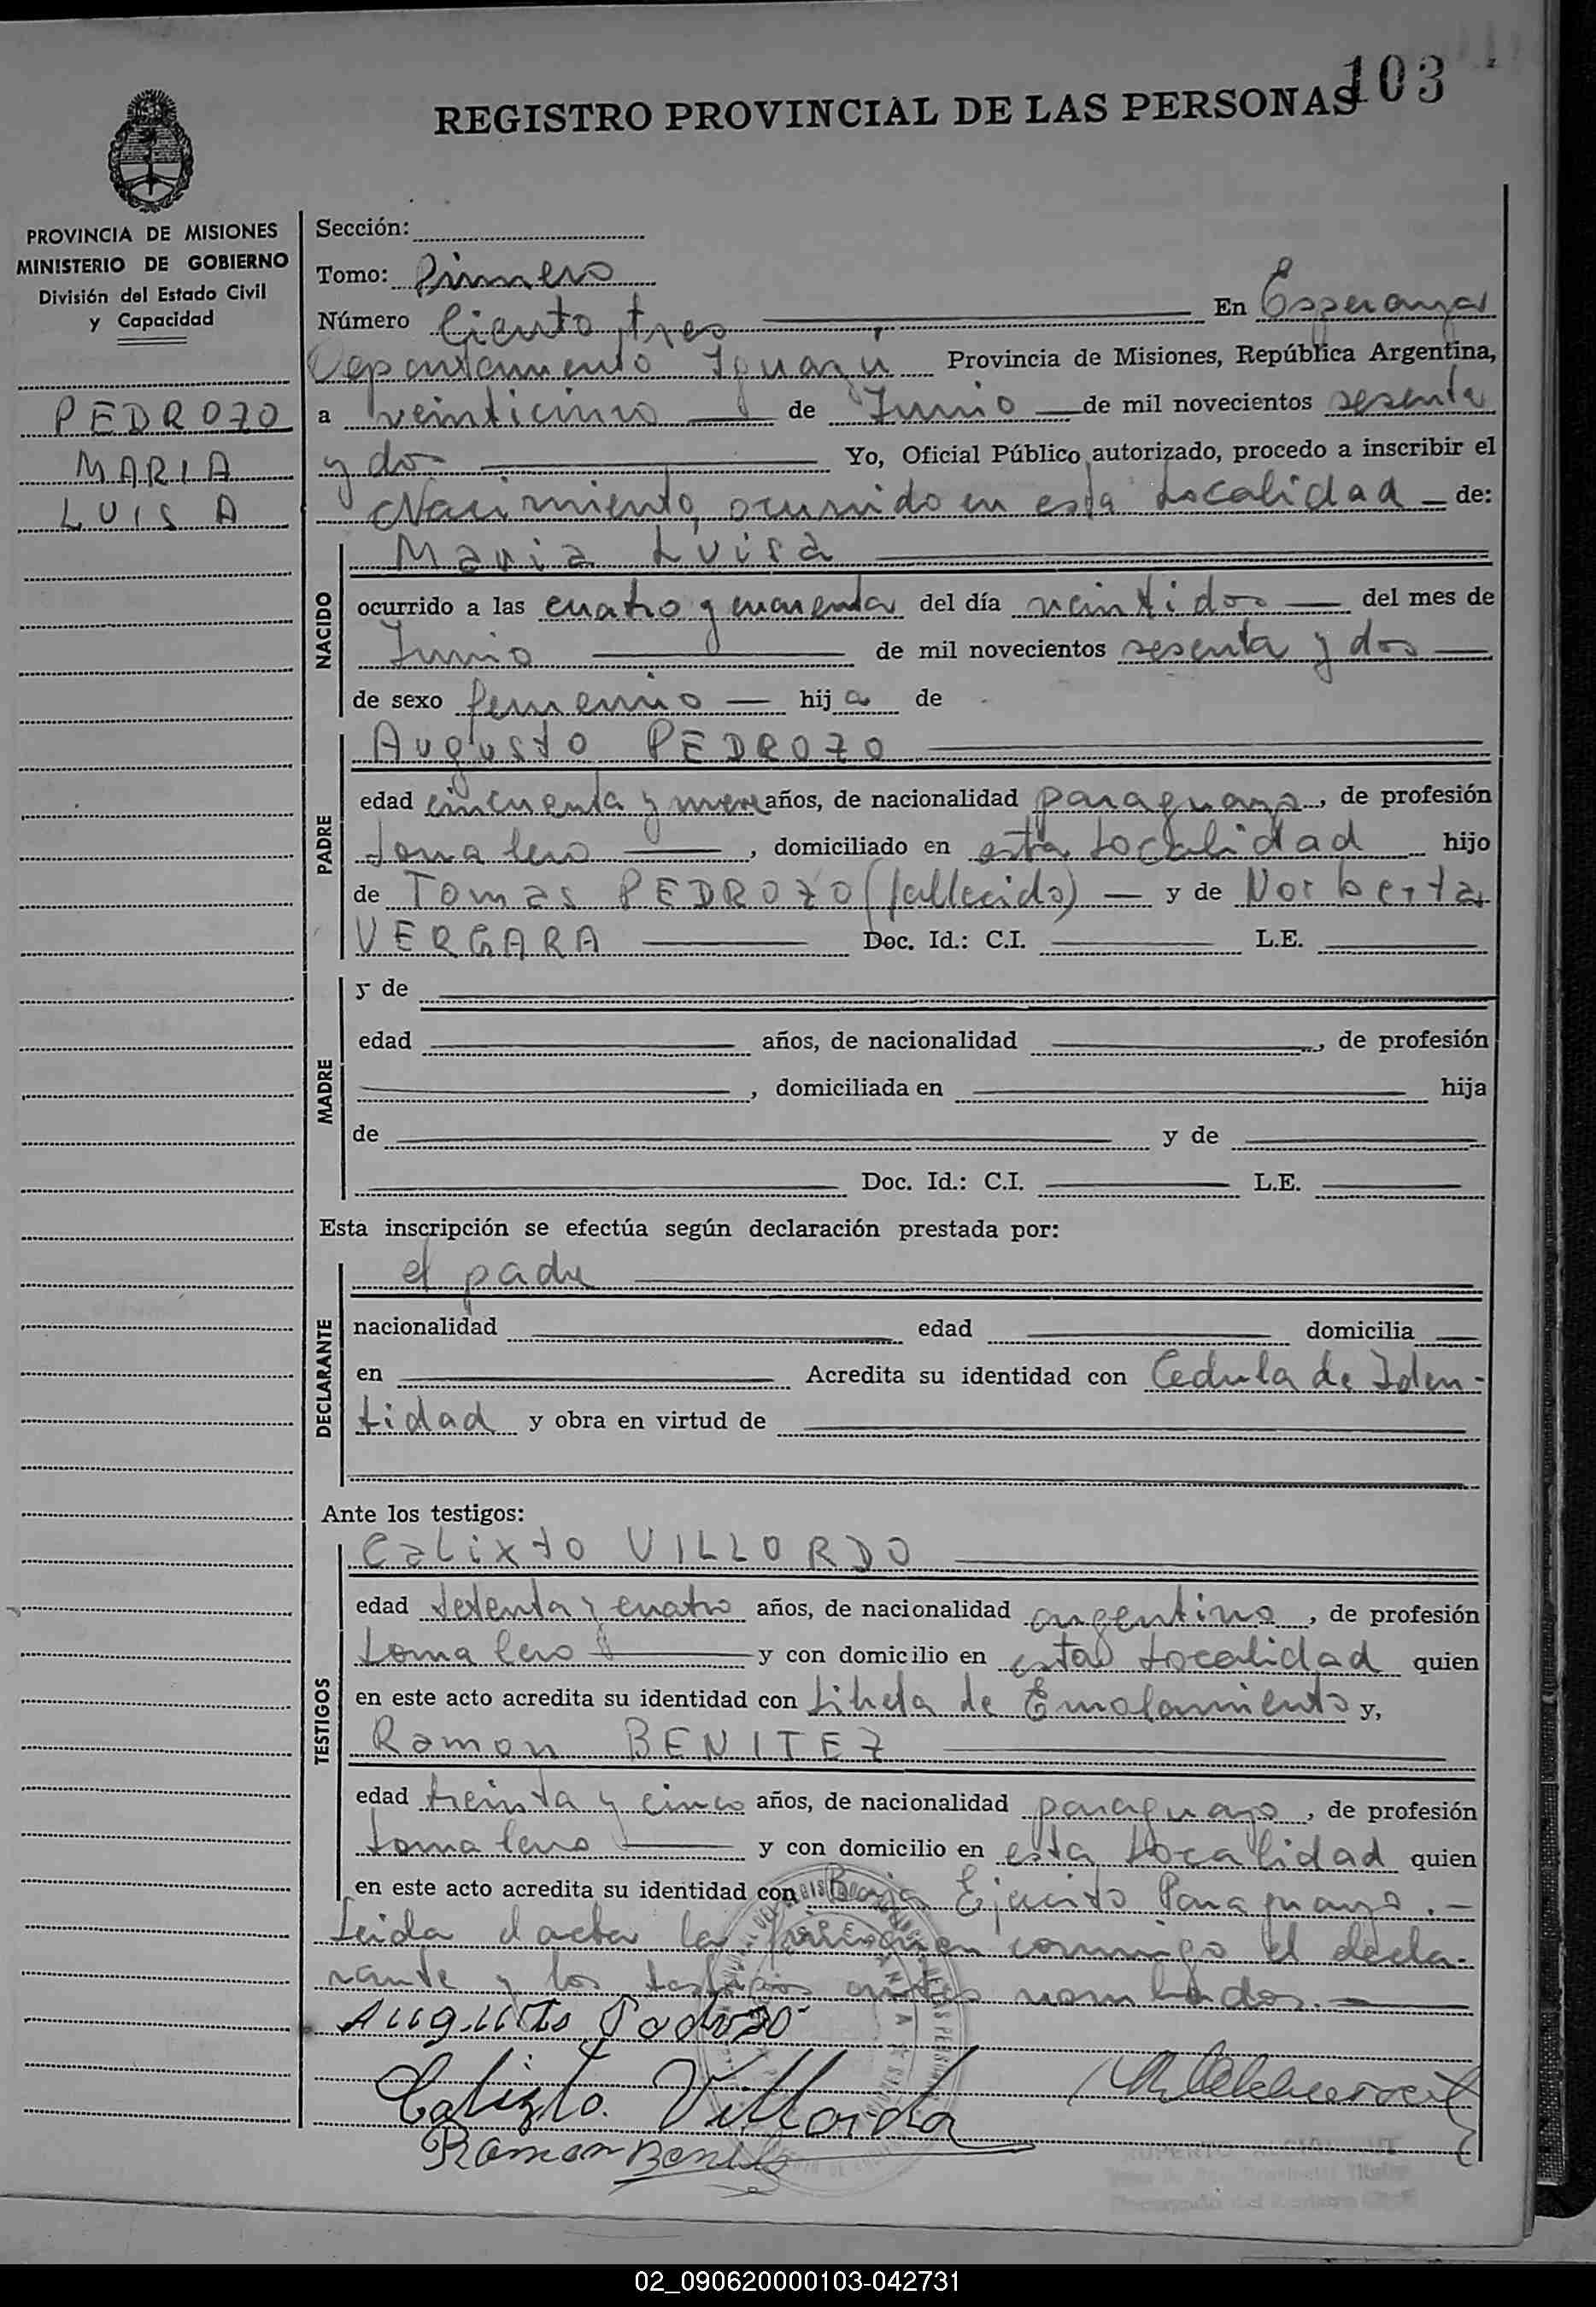 103
REGISTRO PROVINCIAL DE LAS PERSONAS
PROVINCIA DE MISIONES
MINISTERIO DE GOBIERNO
División del Estado Civil
y Capacidad
PEDROZO
MARIA
LUISA
Sección:
Tomo: Primero
Número Ciento tres En Esperanza
Departamento Iguazú Provincia de Misiones, República Argentina,
a veinticinco de Junio de mil novecientos sesenta
y dos Yo, Oficial Público autorizado, procedo a inscribir el
Nacimiento, ocurrido en esta Localidad de:
NACIDO
Maria Luisa
ocurrido a las cuatro y cuarenta del día veintidos del mes de
Junio de mil novecientos sesenta y dos
de sexo femenino hija de
PADRE
Augusto PEDROZO
edad cincuenta y nueve años, de nacionalidad paraguaya, de profesión
Jornalero, domiciliado en esta Localidad hijo
de Tomas PEDROZO (fallecido) y de Norberta
VERGARA Doc. Id.: C.I. L.E.
MADRE
y de
edad años, de nacionalidad , de profesión
, domiciliada en hija
de y de
Doc. Id.: C.I. L.E.
Esta inscripción se efectúa según declaración prestada por:
DECLARANTE
el padre
nacionalidad edad domicilia
en Acredita su identidad con Cedula de Iden-
tidad y obra en virtud de
Ante los testigos:
TESTIGOS
Calixto VILLORDO
edad setenta y cuatro años, de nacionalidad argentino, de profesión
Jornalero y con domicilio en esta Localidad quien
en este acto acredita su identidad con Libreta de Enrolamiento y,
Ramon BENITEZ
edad treinta y cinco años, de nacionalidad paraguayo, de profesión
Jornalero y con domicilio en esta Localidad quien
en este acto acredita su identidad con Ejercito Paraguayo.-
Leida el acta la firman conmigo el decla-
rante y los testigos antes nombrados.
Augusto Pedrozo
Calizto Villordo
Ramon Benitez
02_090620000103-042731